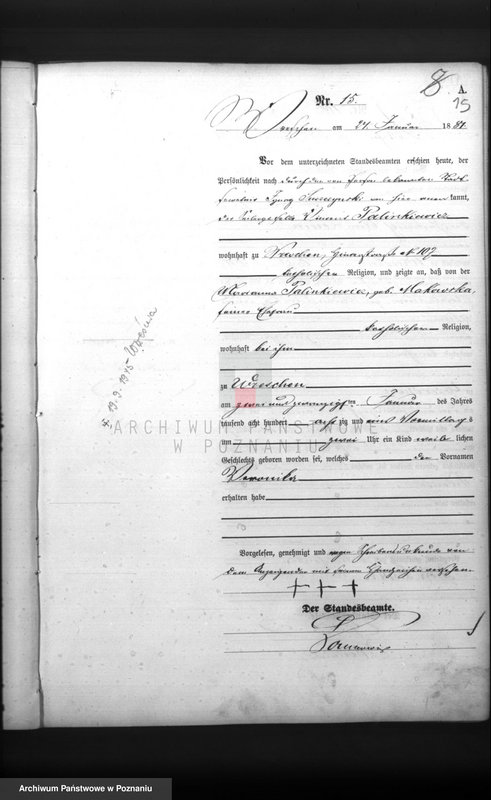 8
A.
15
Nr. 15.
Wreschen am 24 Januar 1881
Vor dem unterzeichneten Standesbeamten erschien heute, der
Persönlichkeit nach durch den von Person bekannten
Ignaz von hier kannt,
Vincent Palinkiewicz
wohnhaft zu Wreschen, No 107
katholischer Religion, und zeigte an, daß von der
Marianna Palinkiewicz, geb. Makowska,
seiner Ehefrau
katholischer Religion,
wohnhaft bei ihm
zu Wreschen
am zwei und zwanzigsten Januar des Jahres
tausend acht hundert acht zig und eins Vormittags
um zwei Uhr ein Kind weiblichen
Geschlechts geboren worden sei, welches den Vornamen
Veronika
erhalten habe
Vorgelesen, genehmigt und wegen Schreibensunkunde von
dem Anzeigenden mit seinem Handzeichen versehen.
+ + +
Der Standesbeamte.
+ 19.9.1945 Września
ARCHIWUM PAŃSTWOWE
W POZNANIU
Archiwum Państwowe w Poznaniu